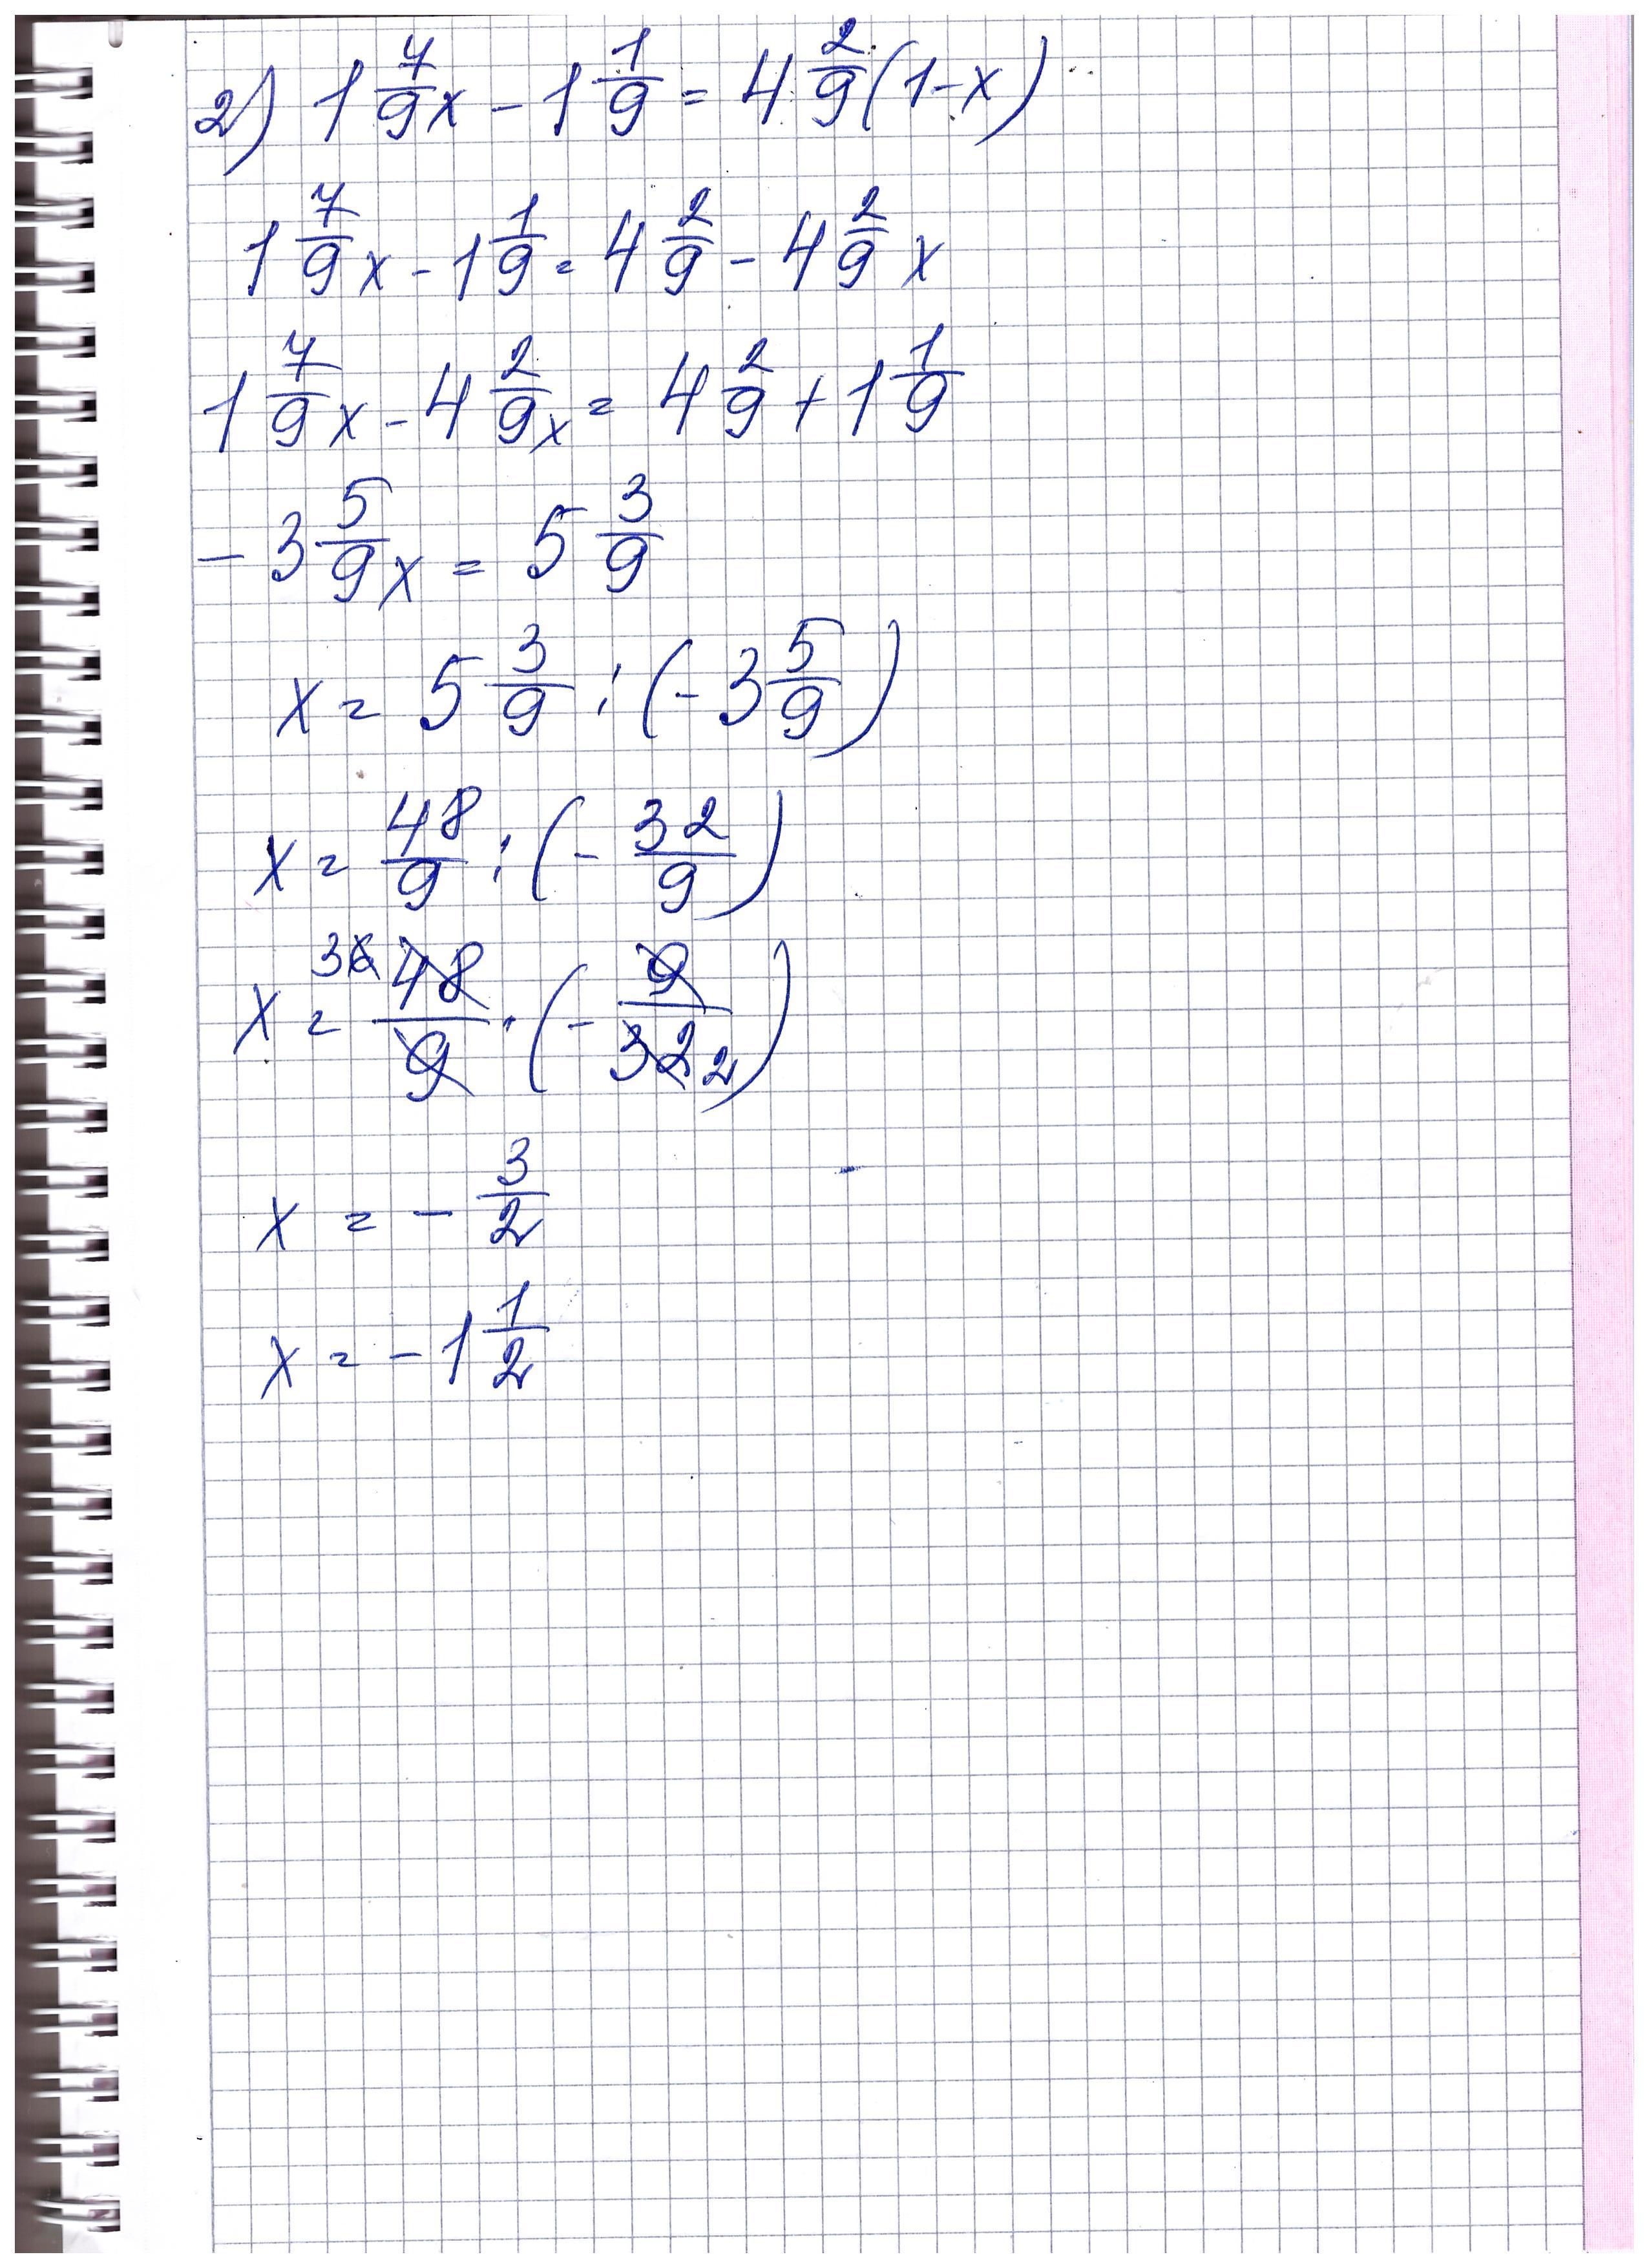 2) 1 7/9 x - 1 1/9 = 4 2/9 (1-x)
1 7/9 x - 1 1/9 = 4 2/9 - 4 2/9 x
1 7/9 x - 4 2/9 x = 4 2/9 + 1 1/9
- 3 5/9 x = 5 3/9
x = 5 3/9 : (- 3 5/9)
x = 48/9 : (- 32/9)
x = 3 6 48/9 · (- 9/32 2)
x = - 3/2
x = - 1 1/2